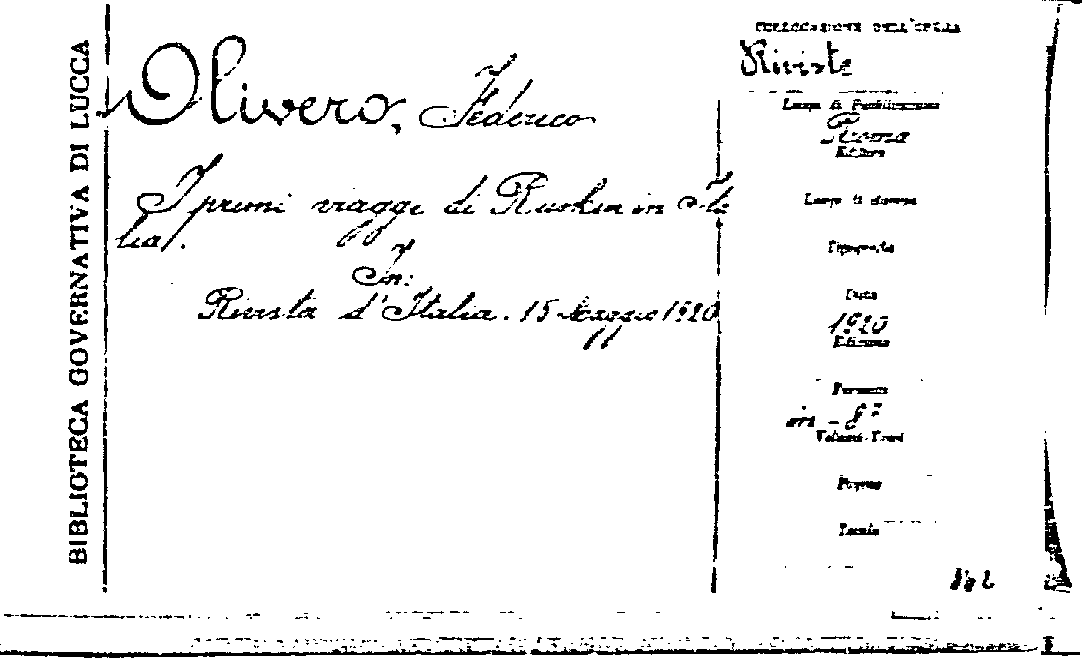 BIBLIOTECA GOVERNATIVA DI LUCCA
Olivero, Federico
I primi viaggi di Ruskin in Ita
lia.
In:
Rivista d'Italia. 15 Maggio 1920
COLLOCAZIONE DELL'OPERA
Riviste
Luogo di Pubblicazione
Roma
Editore
Luogo di stampa
Tipografia
Data
1920
Edizione
Formato
in-8°
Volumi-Tomi
Pagine
Tavole